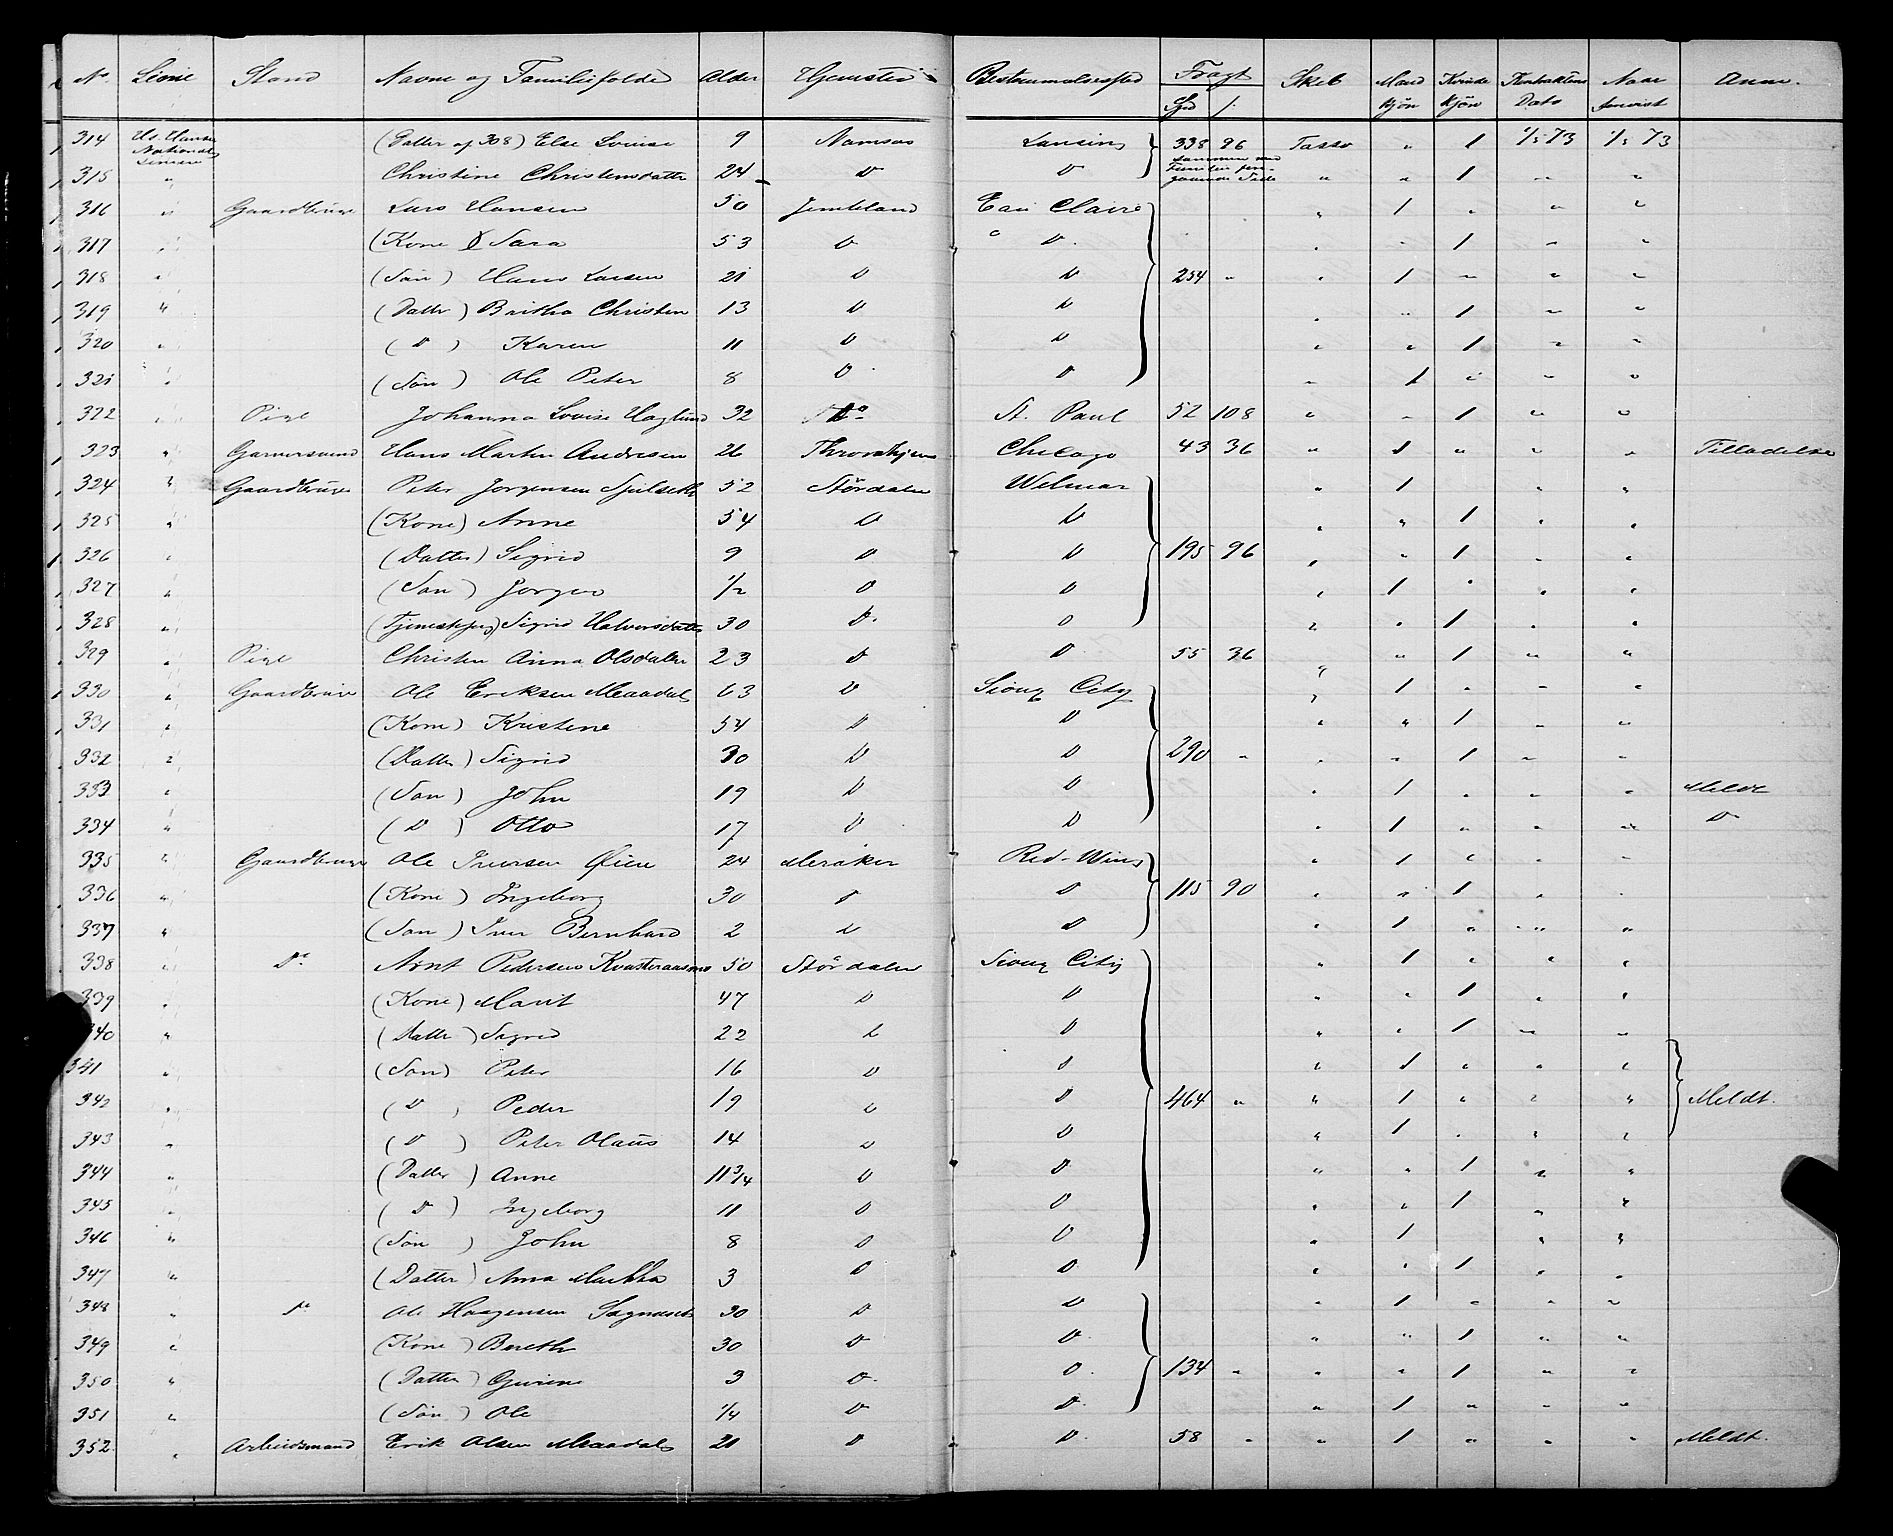 No. Linie Stand Navne og Familieforhold Alder Hjemsted Bestemmelsessted Fragt Skib Mand Kvinde Kontraktens Naar Anm.
Spd /: kjøn kjøn Dato
314 (Datter af 308) Else Lovise 9 Namsos Lansing 338 96 Tasso " 1 1/5 73 1/5 73
National
Linien
sammen med
315 " Christine Christensdatter 24 D D " " 1 " "
316 " Gaardbruger Lars Hansen 50 Jemtland Eau Claire " 1 " " "
317 " (Kone) Sara 53 D D. " " 1 " "
318 " (Søn) Hans Larsen 21 D D 254 " " 1 " " "
319 " (Datter) Britha Christen 13 D D " " 1 " "
320 " (D) Karen 11 D D " " 1 " "
321 " (Søn) Ole Peter 8 D D " 1 " " "
322 " Pige Johanna Lovise Haglund 32 Do St. Paul 52 108 " " 1 " "
323 " Garversvend Hans Martin Andresen 26 Throndhjem Chicago 43 36 " 1 " " " Tilladelse
324 " Gaardbruger Peter Jorgensen 52 Størdalen Welmar " 1 " "
325 " (Kone) Anne 54 D D " " 1 " "
326 " (Datter) Sigrid 9 D D 195 96 " " 1 " "
327 " (Søn) Jorgen 1/2 D D " 1 " " "
328 " Sigrid Halvorsdatter 30 D. D " " 1 " "
329 " Pige Christen Anna Olsdatter 23 D D. 55 36 " " 1 " "
330 " Gaardbruger Ole Eriksen Maadal 63 D Sioux City " 1 " " "
331 " (Kone) Kristine 54 D D " " 1 " "
332 " (Datter) Sigrid 30 D D 290 " " " 1 " "
333 " (Søn) John 19 D D " 1 " " " Meldt
334 " (D) Otto 17 D D " 1 " " " D
335 " Gaardbruger Ole Iversen Øien 24 Meraker Red-Wing " 1 " " "
336 " (Kone) Ingeborg 30 D D 115 90 " " 1 " "
337 " (Søn) Iver Bernhard 2 D D " 1 " " "
338 " Do Arnt Pedersen 50 Størdalen Sioux City " 1 " " "
339 " (Kone) Marit 47 D D " " 1 " "
340 " (Datter) Sigrid 22 D D " " 1 " "
341 " (Søn) Peter 16 D D " 1 " " "
342 " (D) Peder 19 D D 464 " " 1 " " " Meldt.
343 " (D) Peter Olaus 14 D D " 1 " " "
344 " (Datter) Anne 11 3/4 D D " " 1 " "
345 " (D) Ingeborg 11 D D " " 1 " "
346 " (Søn) John 8 D D " 1 " "
347 " (Datter) Anna Martha 3 D D " " 1 " "
348 " Do Ole Haagensen 30 D D " 1 " " "
349 " (Kone) Bereth 30 D D. " " 1 " "
350 " (Datter) 3 D D. 134 " " " 1 " "
351 " (Søn) Ole 1/4 D D. " 1 " " "
352. " Arbeidsmand Erik Olsen Maadal 21 D D. 58 " " 1 " " " Meldt.